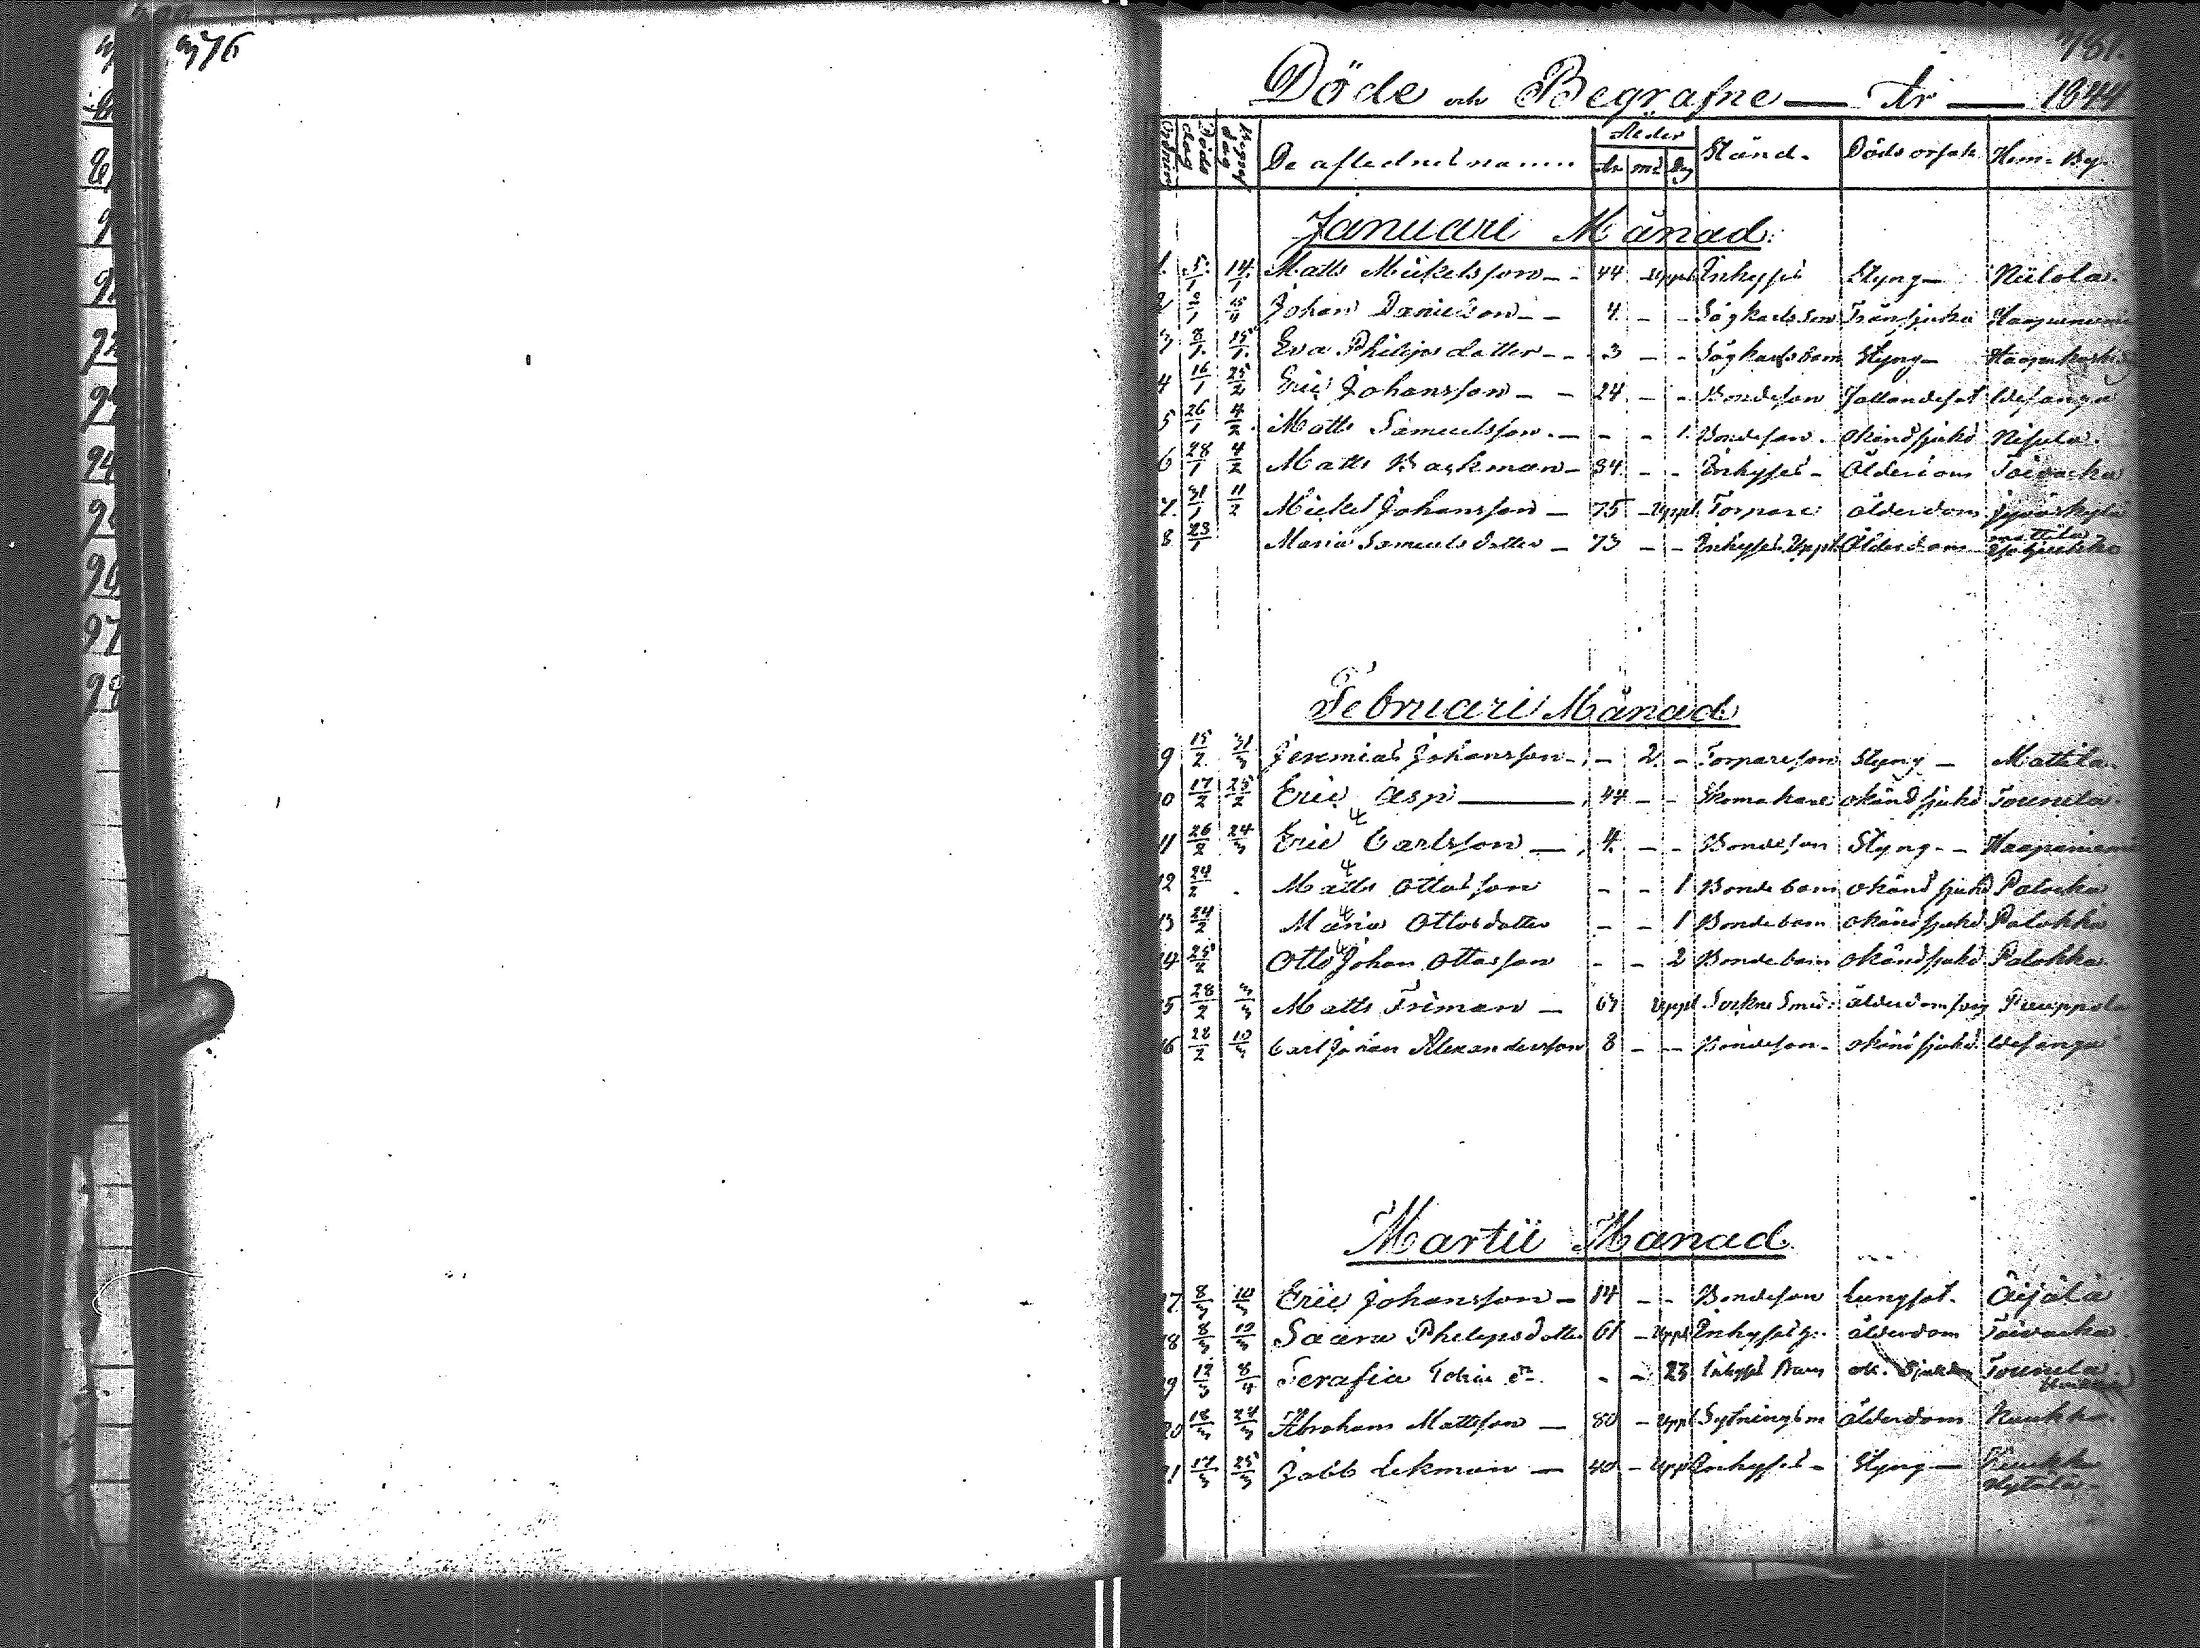 376
781.
Döde och Begrafne — År — 1844
Ordnin Döds dag Begraf dag De aflednes namn Ålder År må Dag Stånd. Dödsorsak Hem-By.
Januari Månad.
1. 5/1 14/1 Matts Mickelsson 44 - Uppl Inhyses Styng Niilola.
2 2/1 15/1 Johan Danielson 4 - - Tränsjuka Haapaniemi
3 8/1. 15/1. Eva Philipsdotter 3 - - Styng
4 16/1 25/2 Eric Johansson 24 - - Bondeson Wesanga
5 26/1 4/2 Matts Samuelsson - - 1. Bondeson. Okänd sjukd Nisula.
6 28/1 4/2 Matts Backman 84 - - Inhyses Ålderdom Toivacka
7. 31/1 11/2 Mickel Johansson 75 - Uppl. Torpare ålderdom Jyväskylä
8 23/1 Maria Samuelsdotter 73 - - Inhyses Uppl. Ålderdom Mattila
Februari Månad
9 15/2 31/3 Jeremias Johansson - 2. - Torpareson Styng Mattila.
10 17/2 25/2 Eric Asp 44 - - Skomakare okänd sjukd Tourula.
11 26/2 24/3 Eric Carlsson 4. - - Bondeson Styng Haapaniemi
12 24/2 Matts Ottosson - - 1 Bondebarn okänd sjukd Palocka
13 24/2 Maria Ottosdotter - - 1 Bondebarn okänd sjukd Palokka
14 25/2 Otto Johan Ottosson - - 2 Bondebarn okänd sjukd Palokka
15 28/2 3/3 Matts Friman 67 Uppl Sockne Smed. Puuppola
16 28/2 10/3 Carl Johan Alexandersson 8 - - Bondeson okänd sjukd. Wesanga
Martii Månad.
17 8/3 10/3 Eric Johansson 14 - - Bondeson Lungsot. Äijälä
18 8/3 10/3 Saara Philipsdotter 61 - Uppl ålderdom Toivacka.
19 12/3 8/4 Serafia - - 23 Inhyses Barn ok. Sjukdom Tourula.
20 18/3 24/3 Abraham Mattsson 80 - Uppl Sytningsm ålderdom Kuukka.
21 17/3 25/3 Jacob Ekman 40 - Uppl Inhyses Styng Kuukka